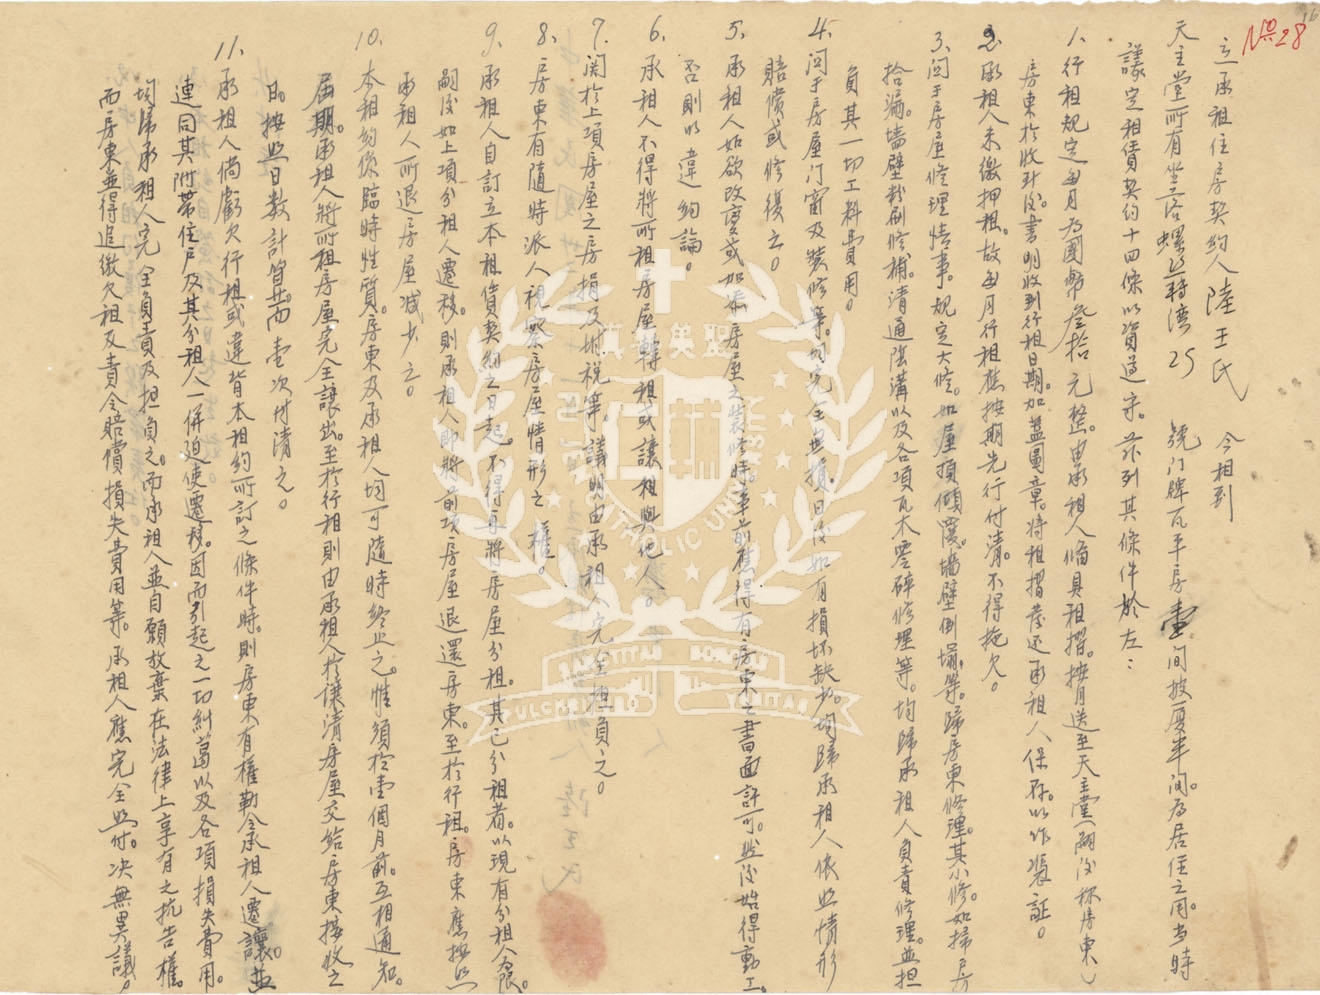 No 28
16
立承租住房契約人陸王氏 今租到
天主堂所有坐落螺絲轉灣25 號門牌瓦平房壹間披厦半间。为居住之用。当時
議定租賃契約十四條以資遵守。茲列其條件於左：
1、行租規定每月为國幣叁拾元整。由承租人備具租摺。按月送至天主堂(嗣後称房東)
房東於收到後。書明收到行租日期。加蓋圖章。將租摺發还承租人保存。以作憑証。
2、承租人未繳押租。故每月行租應按期先行付清。不得拖欠。
3、関于房屋修理情事。規定大修。如屋頂傾覆。墻壁倒塌等。歸房東修理。其小修。如掃房
拾漏。墻壁粉刷修補。清通陰溝以及各項瓦木零碎修理等。均歸承租人負責修理。並担
負其一切工料費用。
4、関于房屋门窗及裝修等。均完全無損。日後如有損坏缺少。均歸承租人依照情形
賠償或修復之。
5、承租人如欲改变或加添房屋之裝修時。事前應得有房東之書面許可。然後始得動工。
否則以違約論。
6、承租人不得將所租房屋轉租或讓租與他人。
7、関於上項房屋之房捐及坿税等。議明由承租人完全担負之。
8、房東有随時派人視察房屋情形之權。
9、承租人自訂立本租賃契約之日起。不得再將房屋分租。其已分租者。以現有分租人为限。
嗣後如上項分租人遷移。則承租人即將前項房屋退還房東。至於行租。房東應按照
承租人所退房屋减少之。
10、本租約係臨時性質。房東及承租人均可随時終止之。惟須於壹個月前。互相通知。
届期。承租人將所租房屋完全讓出。至於行租則由承租人於讓清房屋交给房東接收之
日。按照日数計算。而壹次付清之。
11、承租人倘虧欠行租或違背本租約所訂之條件時。則房東有權勒令承租人遷讓。並
連同其附带住户及其分租人一併迫使遷移。因而引起之一切糾葛以及各項損失費用。
均歸承租人完全負責及担負之。而承租人並自願放棄在法律上享有之抗告權。
而房東並得追繳欠租及責令賠償損失費用等。承租人應完全照付。决無異議。
陸王氏